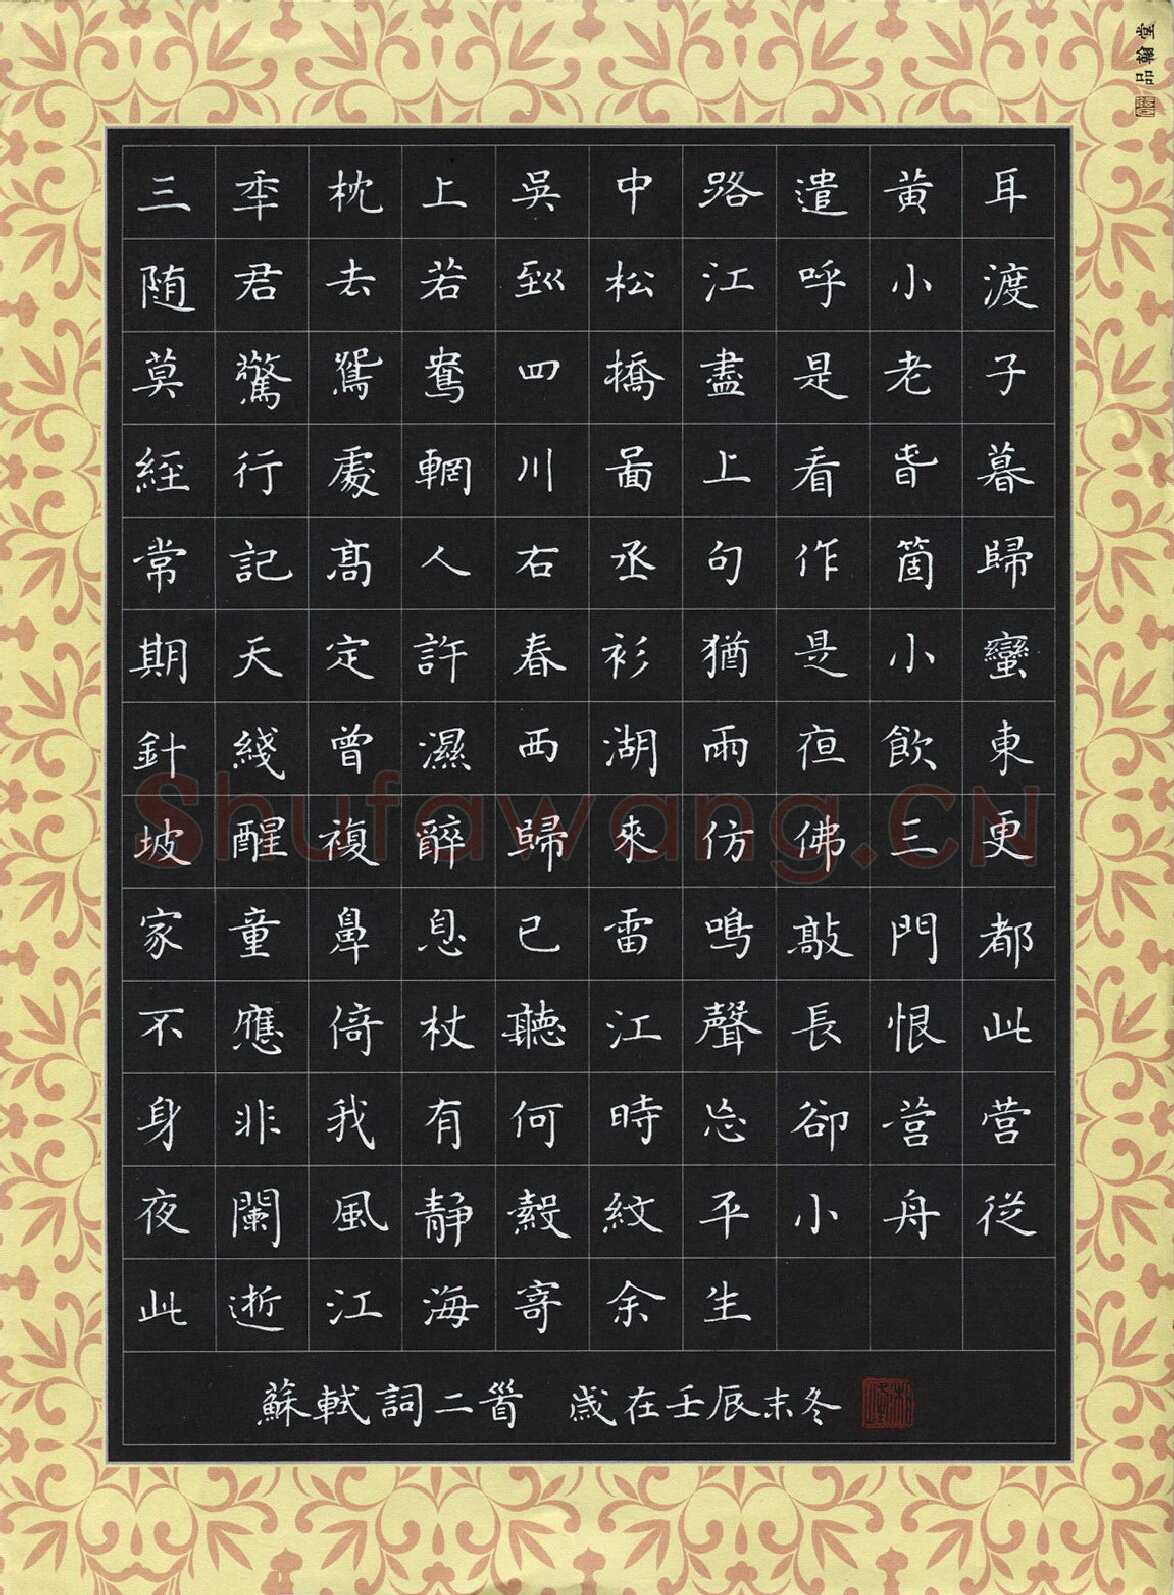 三秊枕上吳中路遣黃耳
随君去若到松江呼小渡
莫驚鴛鴦四橋盡是老子
經行處輞川啚上看旾暮
常記高人右丞句作箇歸
期天定許春衫猶是小蠻
針綫曾濕西湖雨亱飲東
坡醒複醉歸來仿佛三更
家童鼻息已雷鳴敲門都
不應倚杖聽江聲長恨此
身非我有何時忘卻營營
夜闌風靜縠紋平小舟從
此逝江海寄余生
蘇軾詞二首 歲在壬辰末冬
品翰堂
Shufawang.CN